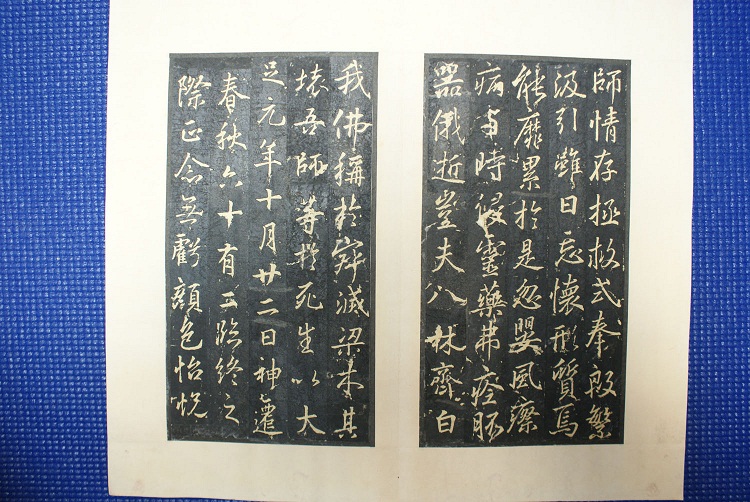 師情存拯救式奉殷繁
汲引雖日忘懷形質焉
能靡累於是忽嬰風瘵
病与時侵靈藥弗痊脈
器俄逝豈夫八林齊白
我佛稱於寂滅梁木其
壞吾師等於死生以大
足元年十月廿二日神遷
春秋六十有二臨終之
際正念無虧顏色怡悅